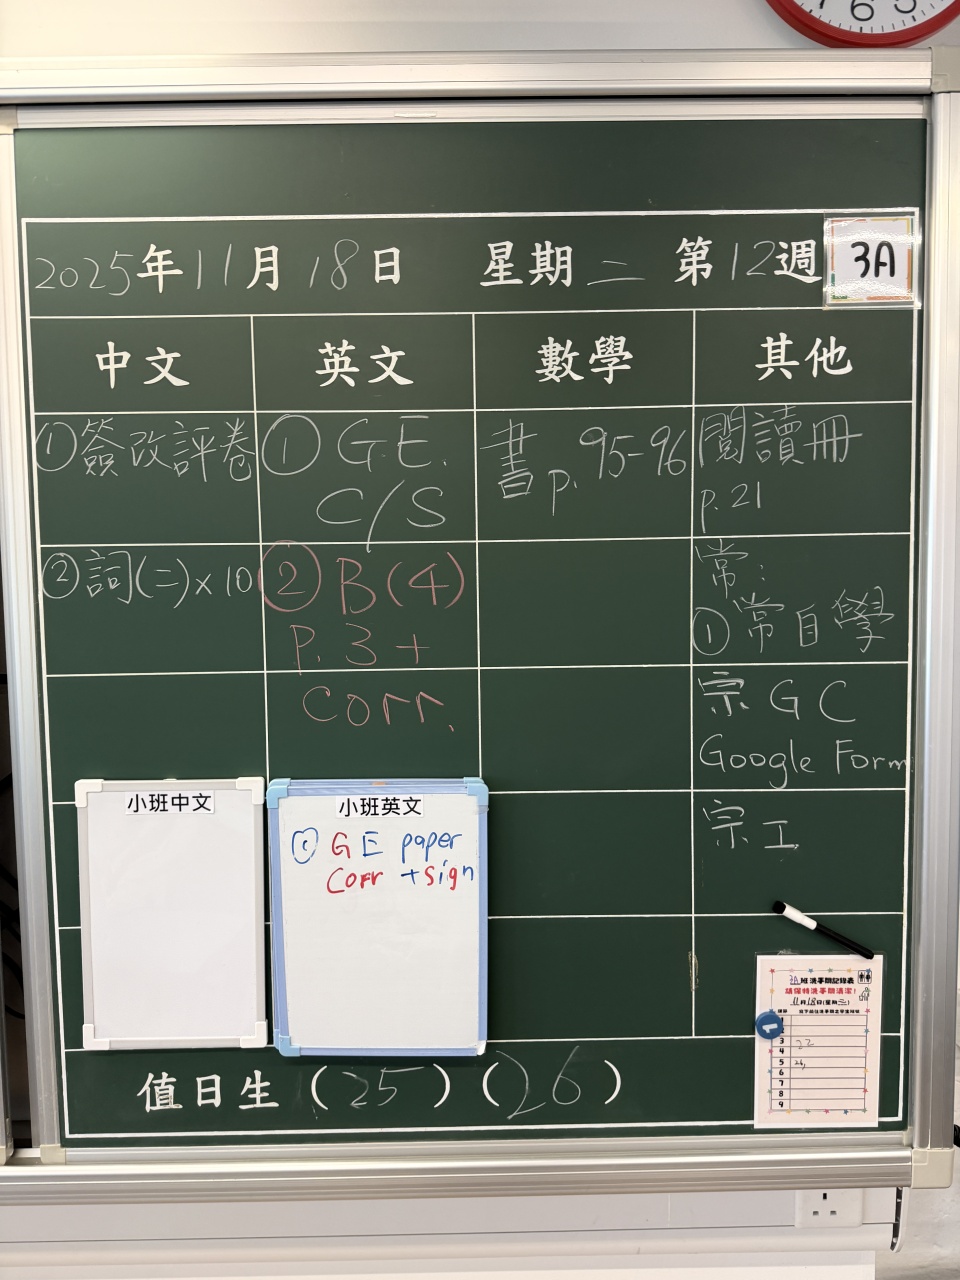 6 5
2025年11月18日 星期二 第12週 3A
中文 英文 數學 其他
①簽改評卷
②詞(二)x10
① G.E.
C/S
② B(4)
P.3+
Corr.
書p.95-96
閱讀冊
p.21
常:
①常自學
宗 GC
Google Form
宗工
小班中文
小班英文
GE paper
Corr +sign
3A班洗手間記錄表
請保持洗手間清潔!
11月18日(星期二)
3 22
4
5
6
7
8
9
值日生 (25)(26)